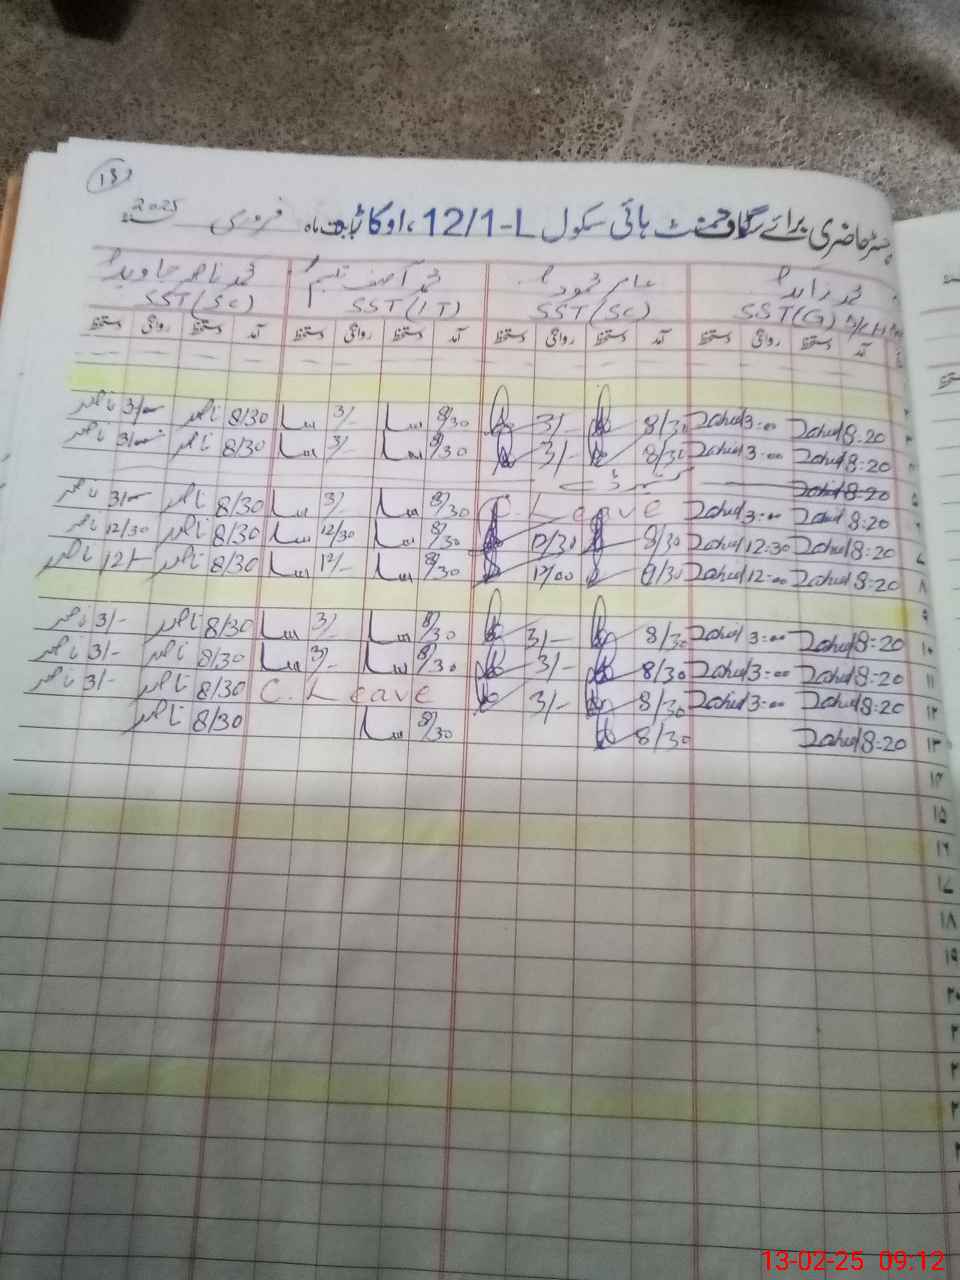 18
رجسٹر حاضری برائے گورنمنٹ ہائی سکول 12/1-L ،اوکاڑہ بابت ماہ فروری 2025
محمد زاہد عامر محمود محمد آصف نسیم محمد ناصر جاوید
SST(G) SST(SC) SST(IT) SST(SC)
آمد دستخط روانگی دستخط آمد دستخط روانگی دستخط آمد دستخط روانگی دستخط آمد دستخط روانگی دستخط
۳ Zahid 8:20 Zahid 3:00 8/30 3/- 8/30 3/- 8/30 ناصر 3/- ناصر
Zahid 8:20 Zahid 3:00 8/30 3/- 8/30 3/- 8/30 ناصر 3/- ناصر
۵ Zahid 8:20
Zahid 8:20 Zahid 3:00 C.Leave 8/30 3/- 8/30 ناصر 3/- ناصر
Zahid 8:20 Zahid 12:30 8/30 12/30 8/30 12/30 8/30 ناصر 12/30 ناصر
۸ Zahid 8:20 Zahid 12:00 8/30 12/00 8/30 12/- 8/30 ناصر 12/- ناصر
۹
۱۰ Zahid 8:20 Zahid 3:00 8/30 3/- 8/30 3/- 8/30 ناصر 3/- ناصر
۱۱ Zahid 8:20 Zahid 3:00 8/30 3/- 8/30 3/- 8/30 ناصر 3/- ناصر
۱۲ Zahid 8:20 Zahid 3:00 8/30 3/- C.Leave 8/30 ناصر 3/- ناصر
۱۳ Zahid 8:20 8/30 8/30 8/30 ناصر
۱۴
۱۵
۱۶
۱۷
۱۸
۱۹
۲۰
13-02-25 09:12